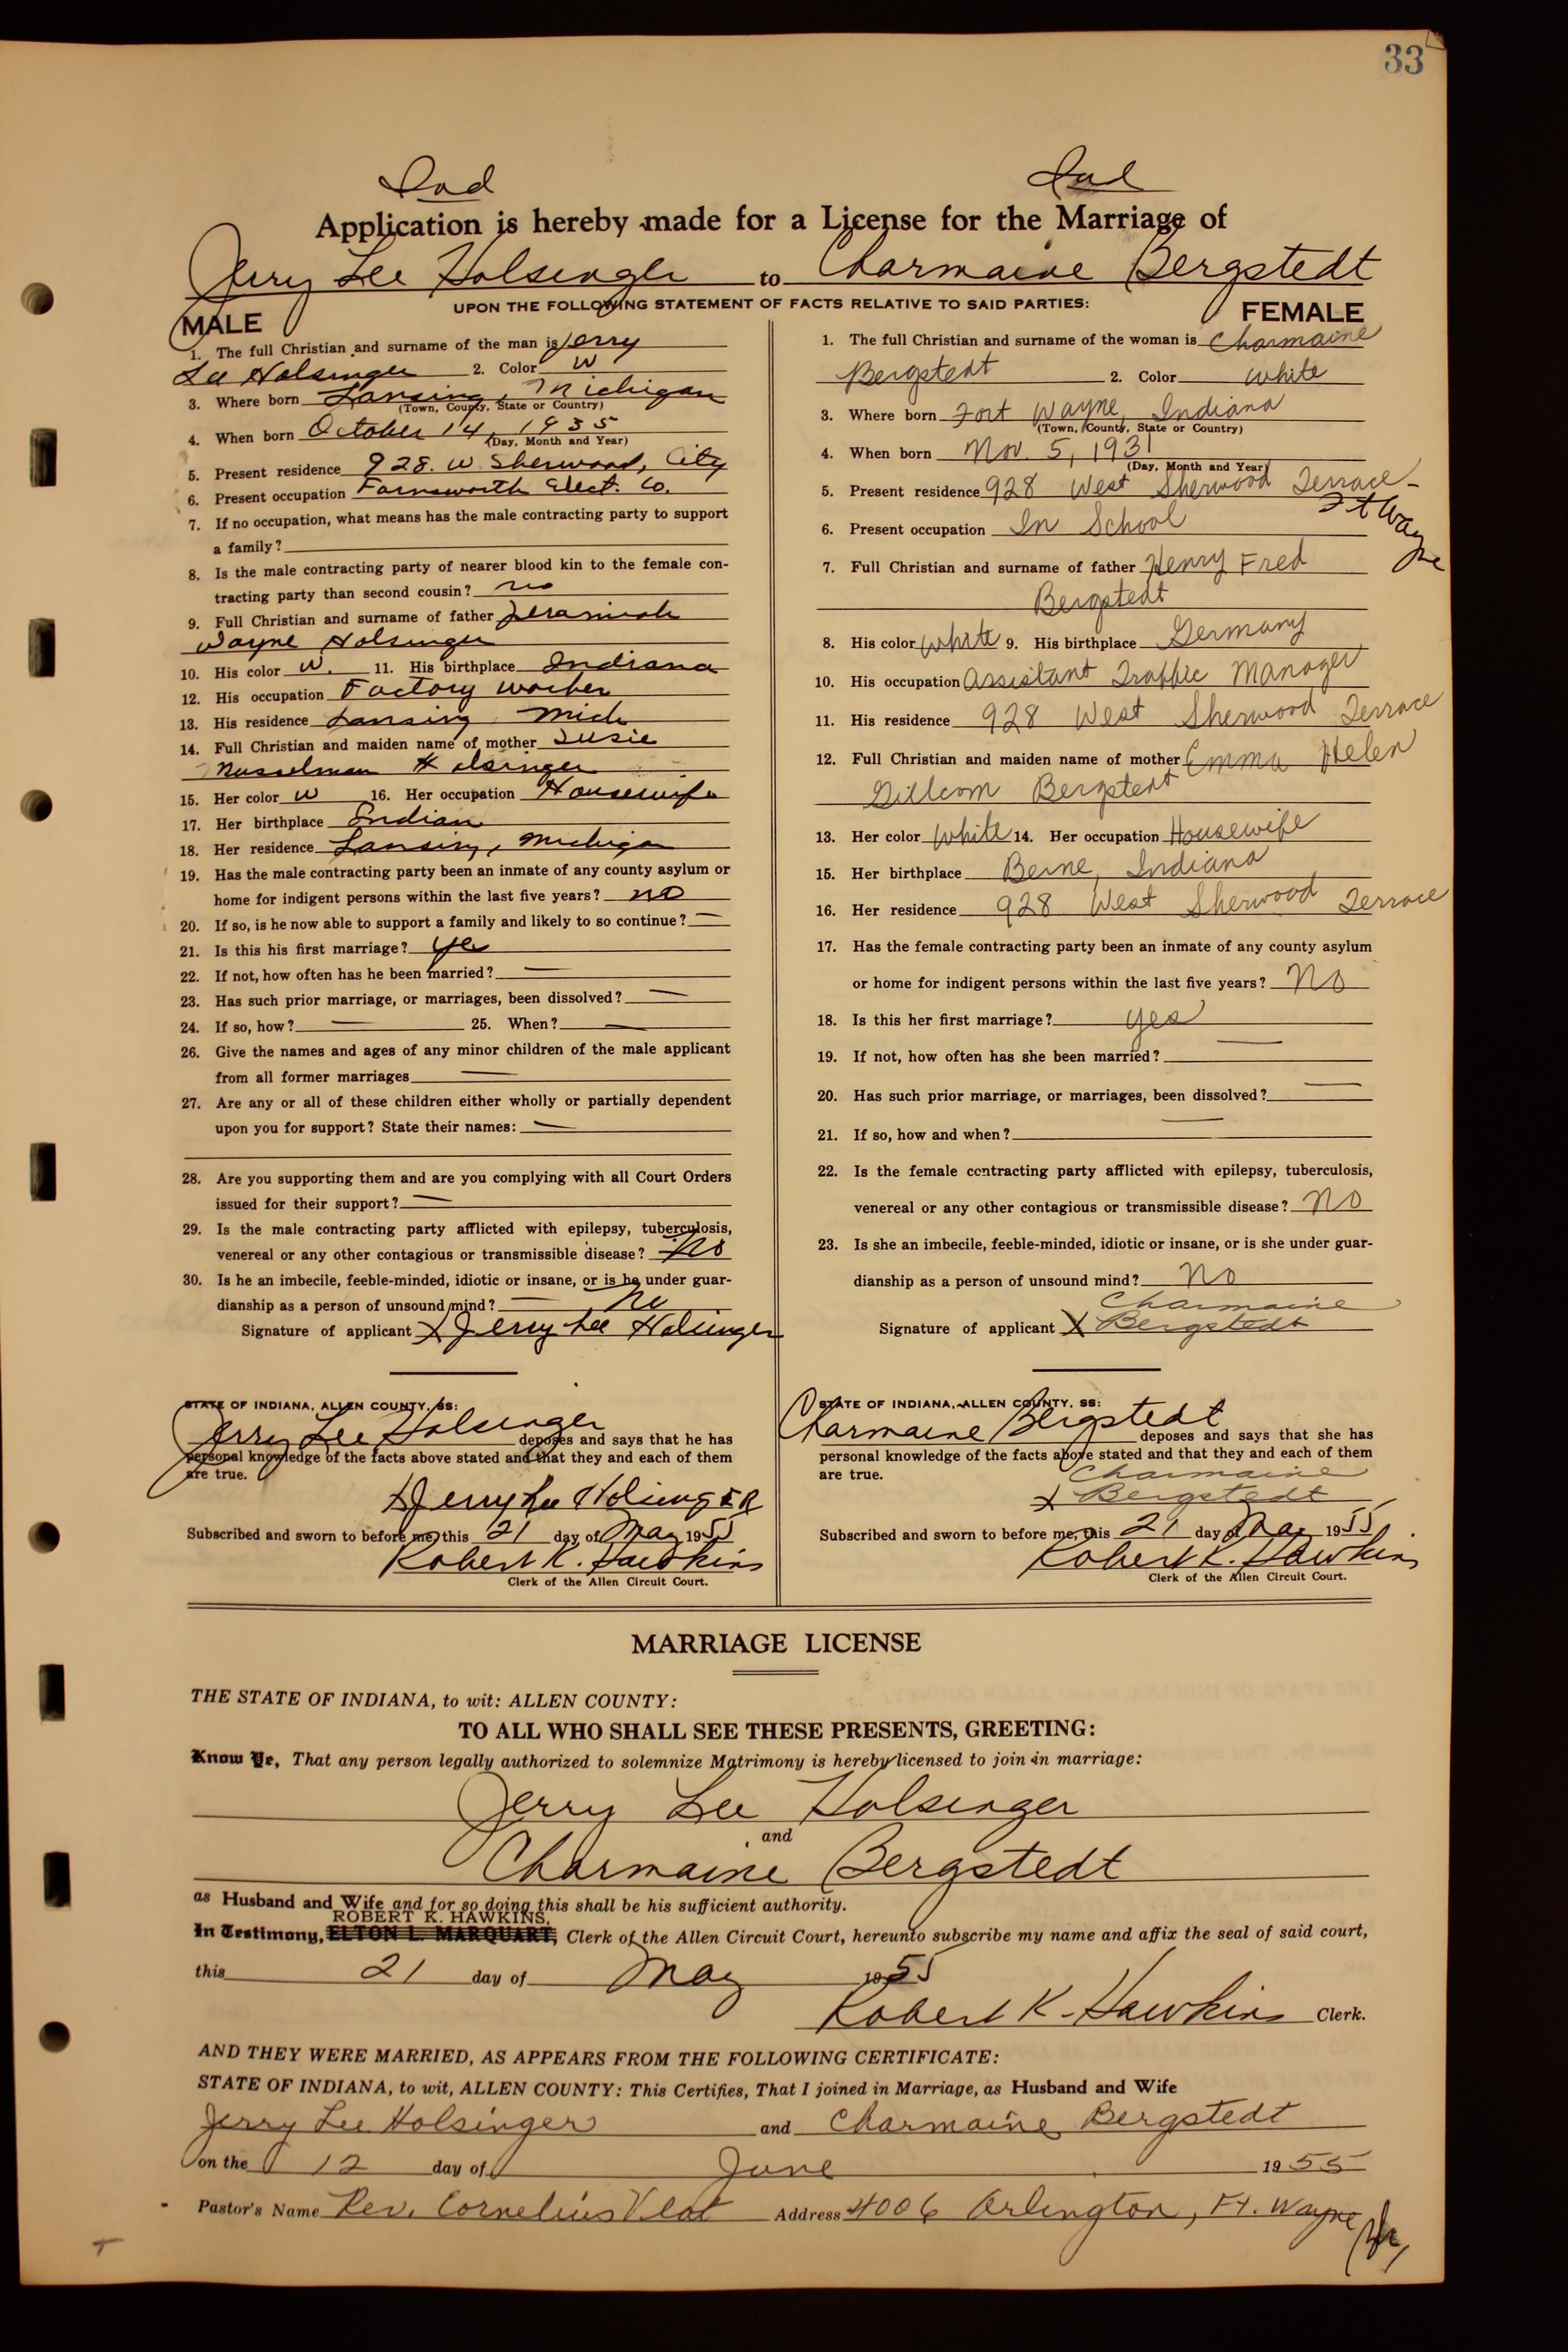 33
Ind Ind
Application is hereby made for a License for the Marriage of
Jerry Lee Holsinger to Charmaine Bergstedt
UPON THE FOLLOWING STATEMENT OF FACTS RELATIVE TO SAID PARTIES:
MALE
1. The full Christian and surname of the man is Jerry
Lee Holsinger 2. Color W
3. Where born Lansing, Michigan
(Town, County, State or Country)
4. When born October 14, 1935
(Day, Month and Year)
5. Present residence 928. W. Sherwood, City
6. Present occupation Farnsworth Elect. Co.
7. If no occupation, what means has the male contracting party to support
a family?
8. Is the male contracting party of nearer blood kin to the female con-
tracting party than second cousin? no
9. Full Christian and surname of father Jeramiah
Wayne Holsinger
10. His color W. 11. His birthplace Indiana
12. His occupation Factory worker
13. His residence Lansing, Mich
14. Full Christian and maiden name of mother Susie
Nusselman Holsinger
15. Her color W 16. Her occupation Housewife
17. Her birthplace Indian
18. Her residence Lansing, Michigan
19. Has the male contracting party been an inmate of any county asylum or
home for indigent persons within the last five years? no
20. If so, is he now able to support a family and likely to so continue? —
21. Is this his first marriage? yes
22. If not, how often has he been married? —
23. Has such prior marriage, or marriages, been dissolved? —
24. If so, how? — 25. When? —
26. Give the names and ages of any minor children of the male applicant
from all former marriages —
27. Are any or all of these children either wholly or partially dependent
upon you for support? State their names: —
28. Are you supporting them and are you complying with all Court Orders
issued for their support? —
29. Is the male contracting party afflicted with epilepsy, tuberculosis,
venereal or any other contagious or transmissible disease? No
30. Is he an imbecile, feeble-minded, idiotic or insane, or is he under guar-
dianship as a person of unsound mind? — No
Signature of applicant X Jerry Lee Holsinger
STATE OF INDIANA, ALLEN COUNTY, SS:
Jerry Lee Holsinger deposes and says that he has
personal knowledge of the facts above stated and that they and each of them
are true.
X Jerry Lee Holsinger
Subscribed and sworn to before me, this 21 day of May 1955
Robert K. Hawkins
Clerk of the Allen Circuit Court.
FEMALE
1. The full Christian and surname of the woman is Charmaine
Bergstedt 2. Color White
3. Where born Fort Wayne, Indiana
(Town, County, State or Country)
4. When born Nov. 5, 1931
(Day, Month and Year)
5. Present residence 928 West Sherwood Terrace -
Ft Wayne
6. Present occupation In School
7. Full Christian and surname of father Henry Fred
Bergstedt
8. His color White 9. His birthplace Germany
10. His occupation Assistant Traffic Manager
11. His residence 928 West Sherwood Terrace
12. Full Christian and maiden name of mother Emma Helen
Gillcom Bergstedt
13. Her color White 14. Her occupation Housewife
15. Her birthplace Berne, Indiana
16. Her residence 928 West Sherwood Terrace
17. Has the female contracting party been an inmate of any county asylum
or home for indigent persons within the last five years? No
18. Is this her first marriage? yes
19. If not, how often has she been married? —
20. Has such prior marriage, or marriages, been dissolved? —
21. If so, how and when? —
22. Is the female contracting party afflicted with epilepsy, tuberculosis,
venereal or any other contagious or transmissible disease? No
23. Is she an imbecile, feeble-minded, idiotic or insane, or is she under guar-
dianship as a person of unsound mind? No
Charmaine
Signature of applicant X Bergstedt
STATE OF INDIANA, ALLEN COUNTY, SS:
Charmaine Bergstedt deposes and says that she has
personal knowledge of the facts above stated and that they and each of them
are true.
Charmaine
X Bergstedt
Subscribed and sworn to before me, this 21 day of May 1955
Robert K. Hawkins
Clerk of the Allen Circuit Court.
MARRIAGE LICENSE
THE STATE OF INDIANA, to wit: ALLEN COUNTY:
TO ALL WHO SHALL SEE THESE PRESENTS, GREETING:
Know Ye, That any person legally authorized to solemnize Matrimony is hereby licensed to join in marriage:
Jerry Lee Holsinger
and
Charmaine Bergstedt
as Husband and Wife and for so doing this shall be his sufficient authority.
ROBERT K. HAWKINS,
In Testimony, ELTON L. MARQUART, Clerk of the Allen Circuit Court, hereunto subscribe my name and affix the seal of said court,
this 21 day of May 1955
Robert K. Hawkins Clerk.
AND THEY WERE MARRIED, AS APPEARS FROM THE FOLLOWING CERTIFICATE:
STATE OF INDIANA, to wit, ALLEN COUNTY: This Certifies, That I joined in Marriage, as Husband and Wife
Jerry Lee Holsinger and Charmaine Bergstedt
on the 12 day of June 1955
Pastor's Name Rev. Cornelius Vlot Address 4006 Arlington, Ft. Wayne